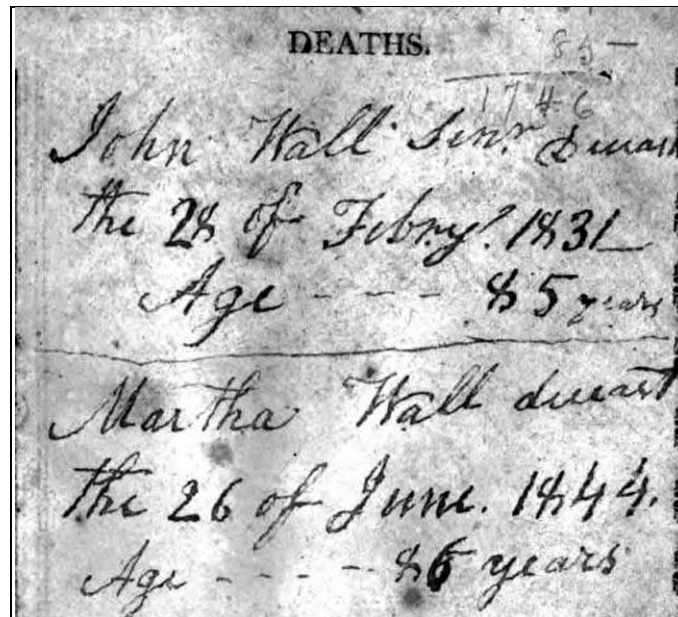 DEATHS.
85
1746
John Wall Senr. Deceast
the 28 of Febry. 1831
Age - - - 85 years
Martha Wall deceast
the 26 of June. 1844.
Age - - - - 86 years